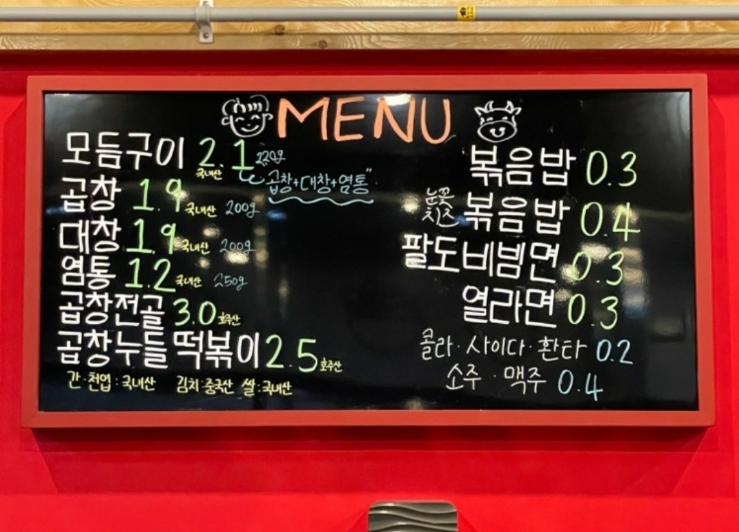 MENU
모듬구이 2.1 국내산 220g
곱창+대창+염통"
곱창 1.9 국내산 200g
대창 1.9 국내산 200g
염통 1.2 국내산 250g
곱창전골 3.0 호주산
곱창누들떡볶이 2.5 호주산
간·천엽:국내산 김치:중국산 쌀:국내산
볶음밥 0.3
눈꽃치즈 볶음밥 0.4
팔도비빔면 0.3
열라면 0.3
콜라·사이다·환타 0.2
소주·맥주 0.4